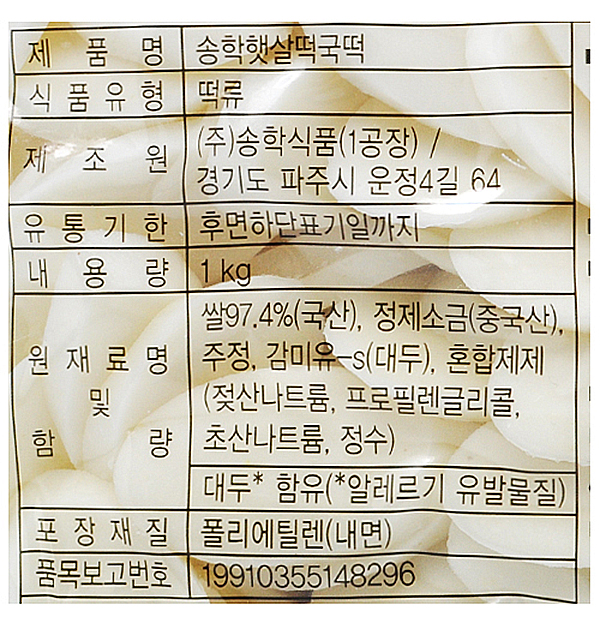 제품명 송학햇살떡국떡
식품유형 떡류
제조원 (주)송학식품(1공장) /
경기도 파주시 운정4길 64
유통기한 후면하단표기일까지
내용량 1kg
쌀97.4%(국산), 정제소금(중국산),
원재료명 주정, 감미유-s(대두), 혼합제제
및 (젖산나트륨, 프로필렌글리콜,
함량 초산나트륨, 정수)
대두* 함유(*알레르기 유발물질)
포장재질 폴리에틸렌(내면)
품목보고번호 19910355148296